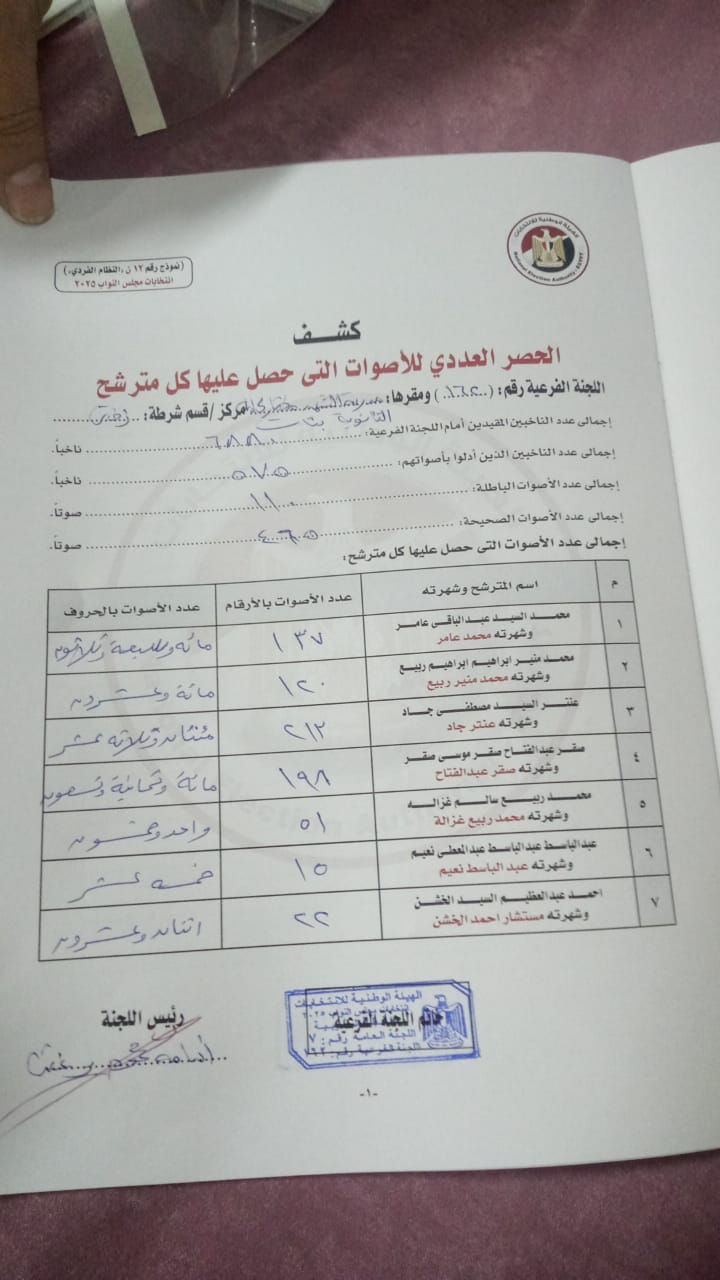 الهيئة الوطنية للانتخابات
National Election Authority - EGYPT
(نموذج رقم ١٢ ن «النظام الفردي»)
انتخابات مجلس النواب ٢٠٢٥
كشف
الحصر العددي للأصوات التى حصل عليها كل مترشح
اللجنة الفرعية رقم: ومقرها: مدرسة مركز/قسم شرطة:
الثانوية بنات
إجمالى عدد الناخبين المقيدين أمام اللجنة الفرعية: ٦٨٨٠ ناخباً.
إجمالى عدد الناخبين الذين أدلوا بأصواتهم: ٥٧٥ ناخباً.
إجمالى عدد الأصوات الباطلة: ١١٠ صوتاً.
إجمالى عدد الأصوات الصحيحة: ٤٦٥ صوتاً.
إجمالى عدد الأصوات التى حصل عليها كل مترشح:
م اسم المترشح وشهرته عدد الأصوات بالأرقام عدد الأصوات بالحروف
١ محمد السيد عبدالباقى عامر ١٣٧ مائة وسبعة وثلاثون
وشهرته محمد عامر
٢ محمد منير ابراهيم ابراهيم ربيع ١٢٠ مائة وعشرون
وشهرته محمد منير ربيع
٣ عنتر السيد مصطفى جاد ٢١٣ مئتان وثلاثة عشر
وشهرته عنتر جاد
٤ صقر عبدالفتاح صقر موسى صقر ١٩٨ مائة وثمانية وتسعون
وشهرته صقر عبدالفتاح
٥ محمد ربيع سالم غزاله ٥١ واحد وخمسون
وشهرته محمد ربيع غزالة
٦ عبدالباسط عبدالباسط عبدالمعطى نعيم ١٥ خمسه عشر
وشهرته عبد الباسط نعيم
٧ احمد عبدالعظيم السيد الخشن ٢٢ اثنان وعشرون
وشهرته مستشار احمد الخشن
خاتم اللجنة الفرعية رئيس اللجنة
الهيئة الوطنية للانتخابات
انتخابات مجلس النواب ٢٠٢٥
اللجنة العامة رقم: ٧
اللجنة الفرعية رقم:
أسامه
-١-